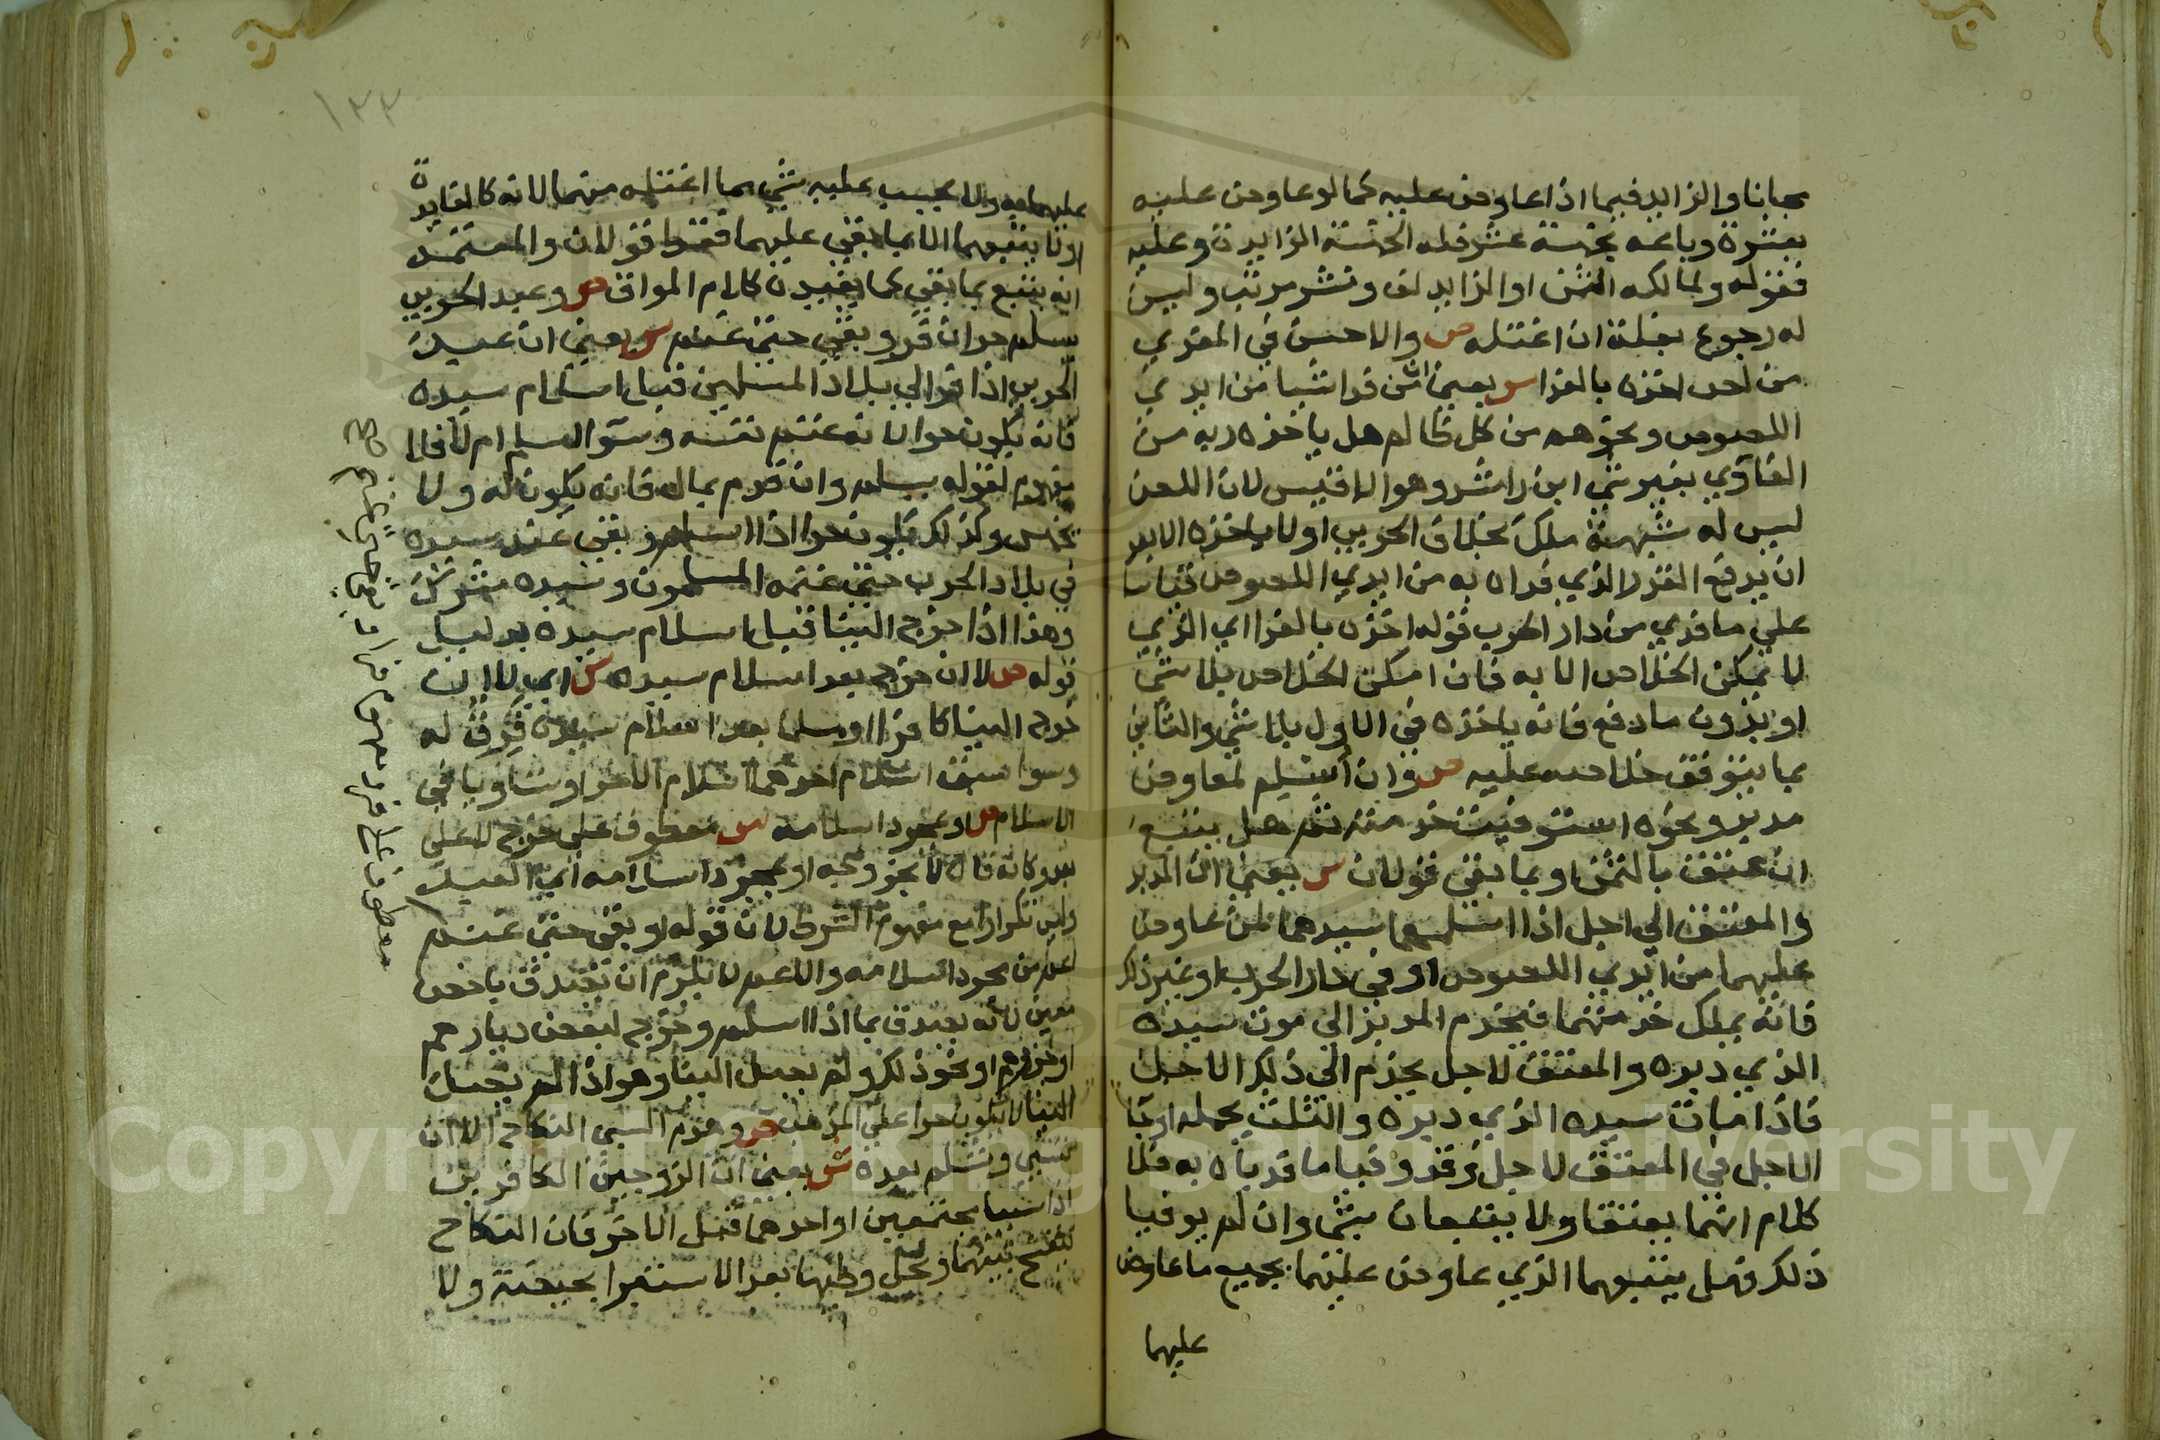 مجانا والزايد فيما اذا عاوض عليه كما لو عاوض عليه
بعشرة وباعه بخمسة عشر فله الخمسة الزايدة وعليه
فقوله ولمالكه الثمن او الزايد لف ونشر مرتب وليس
له رجوع بغلة ان اغتله ص والاحسن في المفدي
من لص اخذه بالفدا س يعني ان من فدا شيا من ايدي
اللصوص ونحوهم من كل ظالم هل ياخذه ربه من
الفادي بغير شي ابن راشد وهو الاقيس لان اللص
ليس له شبهة ملك بخلاف الحربي او لا ياخذه الا بعد
ان يدفع القدر الذي فداه به من ايدي اللصوص قياسا
علي ما فدي من دار الحرب قوله اخذه بالفدا اي الذي
لا يمكن الخلاص الا به فان امكن الخلاص بلا شي
او بدون ما دفع فانه ياخذه في الاول بلا شي والثاني
بما يتوقف خلاصه عليه ص وان اسلم لمعاوض
مدبر ونحوه استوفيت خدمته ثم هل يتبع
ان عتق بالثمن او بما بقي قولان س يعني ان المدبر
والمعتق الي اجل اذا اسلمهما سيدهما لمن عاوض
عليهما من ايدي اللصوص او في دار الحرب او غير ذلك
فانه يملك خدمتهما فيخدم المدبر الي موت سيده
الذي دبره والمعتق لاجل يخدم الي ذلك الاجل
فاذا مات سيده الذي دبره والثلث يحمله او جا
الاجل في المعتق لاجل وقد وفيا ما فدياه به فلا
كلام انهما يعتقا ولا يتبعان بشي وان لم يوفيا
ذلك فهل يتبعهما الذي عاوض عليهما بجميع ما عاوض
عليهما
١٣٣
عليهما به ولا يحسب عليه شي مما اغتله منهما لانه كالفايدة
او لا يتبعهما الا بما بقي عليهما فقط قولان والمعتمد
انه يتبع بما بقي كما يفيده كلام المواق ص وعبد الحربي
يسلم حر ان فر و بقي حتي غنم س يعني ان عبد
الحربي اذا فر الي بلاد المسلمين قبل اسلام سيده
فانه يكون حرا لانه غنم نفسه وسوا اسلم ام لا فلا
مفهوم لقوله يسلم وان قدم بمال فانه يكون له ولا
يخمس وكذلك يكون حرا اذا اسلم وبقي عند سيده
في بلاد الحرب حتي غنمه المسلمون وسيده مشرك
وهذا اذا خرج الينا قبل اسلام سيده بدليل
قوله ص لا ان خرج بعد اسلام سيده س اي لا ان
خرج الينا كافرا او مسلما بعد اسلام سيده فرق له
وسوا سبق اسلام احدهما اسلام الاخر او تساويا في
الاسلام ص او بمجرد اسلامه س معطوف علي خرج لا علي
بعد كانه قال لا بخروجه او بمجرد اسلامه اي العبد
وليس تكرارا مع مفهوم الشرط لان قوله او بقي حتي غنم
اعم من مجرد اسلامه والاعم لا يلزم ان يصدق باخص
معين لانه يصدق بما اذا اسلم وخرج لبعض ديارهم
او نحو ذلك ولم يصل الينا وهو اذا لم يصل
الينا لا يكون حرا علي المذهب ص وهدم السبي النكاح الا ان
تسبي وتسلم بعده ش يعني ان الزوجين الكافرين
اذا سبيا مجتمعين او احدهما قبل الاخر فان النكاح
ينفسخ بينهما ويحل وطيها بعد الاستبرا بحيضة ولا